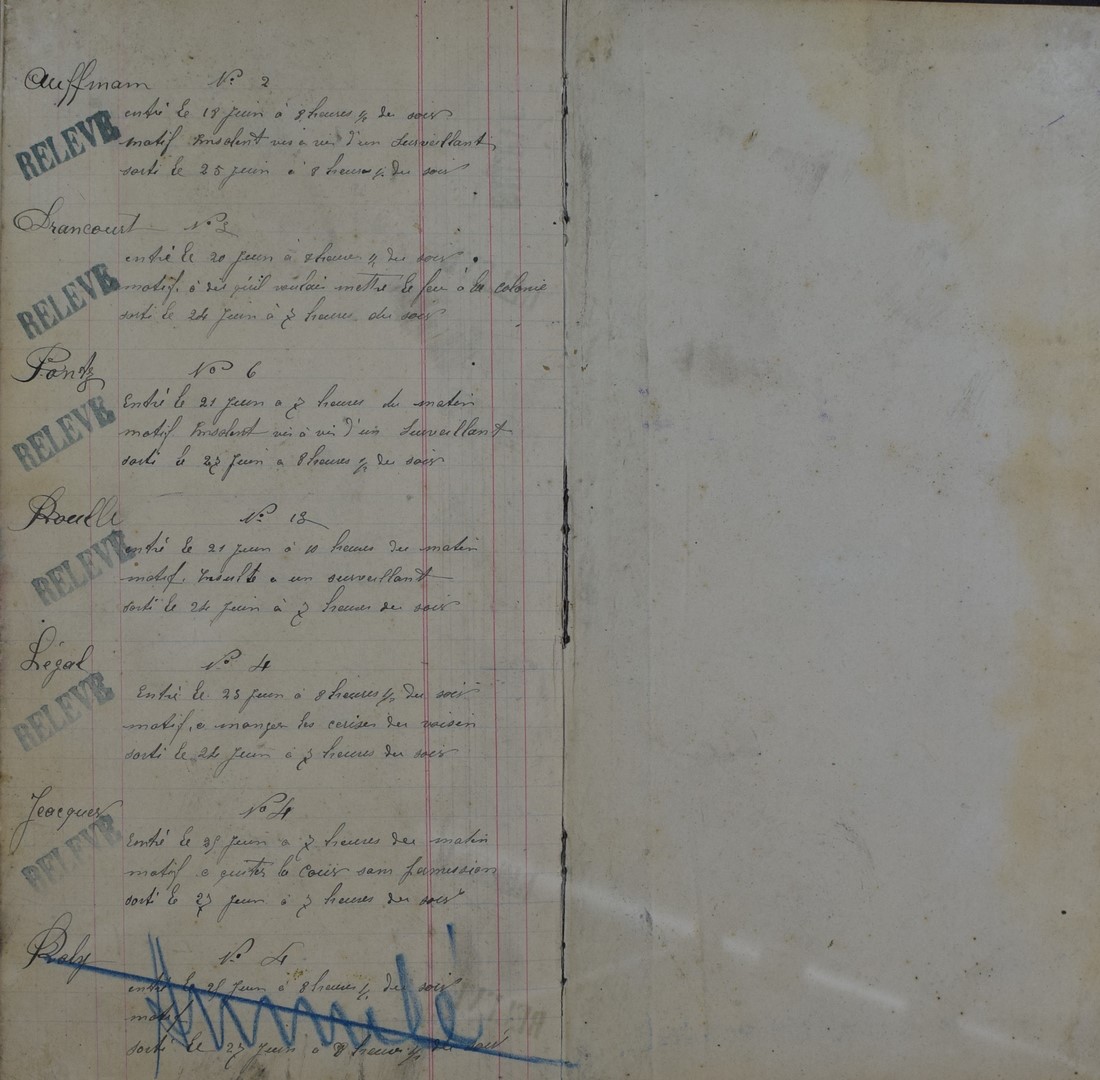 Auffmam N° 2
RELEVE
entré le 18 juin à 8 heures ½ du soir
motif. Insolent vis à vis d'un Surveillant
sorti le 25 juin à 8 heures ½ du soir
Drancourt N° 2
RELEVE
entré le 20 juin à 8 heures ½ du soir
motif. à dit qu'il voulait mettre le feu à la colonie
sorti le 24 juin à 7 heures du soir
N° 6
RELEVE
Entré le 21 juin à 7 heures du matin
motif Insolent vis à vis d'un Surveillant
sorti le 27 juin à 8 heures ½ du soir
Rouelle N° 13
RELEVE
entré le 21 juin à 10 heures du matin
motif. Insulte a un surveillant
sorti le 24 juin à 7 heures du soir
Légal N° 4
RELEVE
Entré le 23 juin à 8 heures ½ du soir
motif. a manger les cerises du voisin
sorti le 24 juin à 7 heures du soir
Jacques N° 4
RELEVE
Entré le 25 juin à 7 heures du matin
motif a quitter la cour sans permission
sorti le 27 juin à 7 heures du soir
N° 4
entré le juin à 8 heures ½ du soir
motif
Annulé
sorti le 27 juin à 8 heures ½ du soir